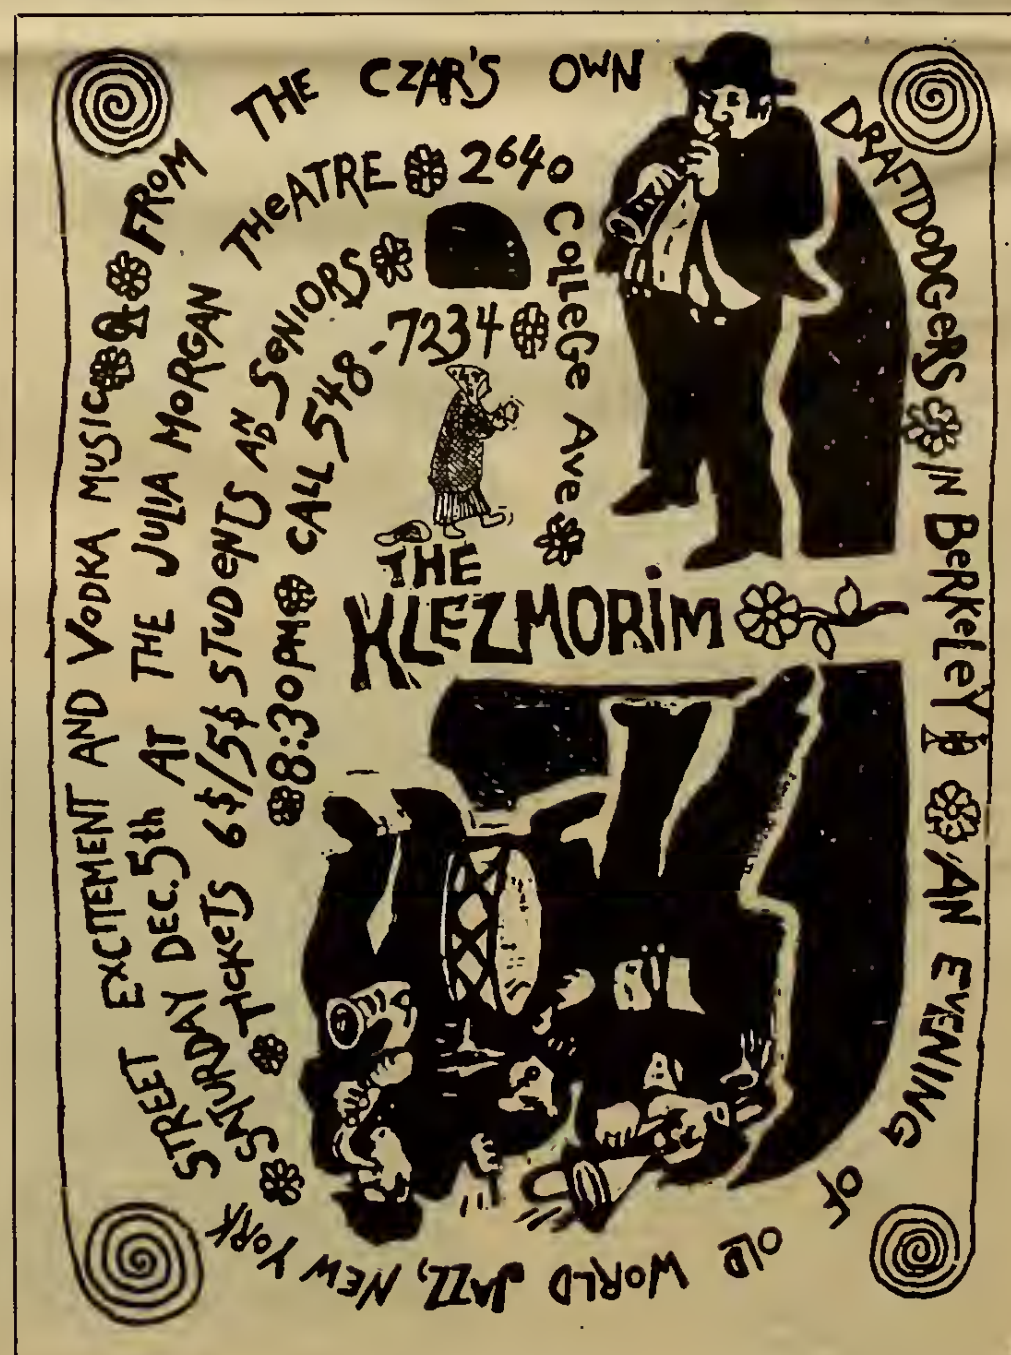 FROM THE CZAR'S OWN DRAFTDODGERS IN BERKELEY AN EVENING OF OLD WORLD JAZZ, NEW YORK STREET EXCITEMENT AND VODKA MUSIC
SATURDAY DEC. 5th AT THE JULIA MORGAN THEATRE 2640 COLLEGE AVE
TICKETS 6$/5$ STUDENTS AND SENIORS
8:30PM CALL 548-7234
THE
KLEZMORIM